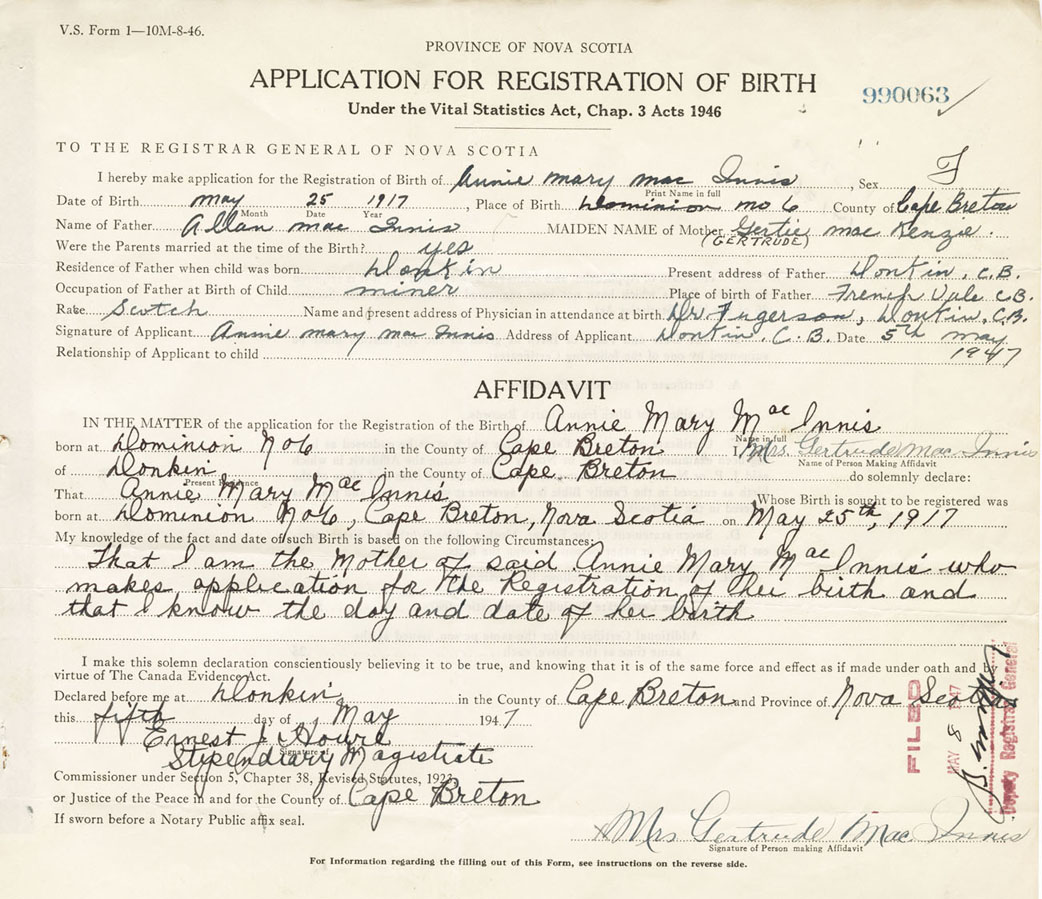 V.S. Form 1—10M-8-46.
PROVINCE OF NOVA SCOTIA
APPLICATION FOR REGISTRATION OF BIRTH
990063
Under the Vital Statistics Act, Chap. 3 Acts 1946
TO THE REGISTRAR GENERAL OF NOVA SCOTIA
I hereby make application for the Registration of Birth of Annie Mary Mac Innis, Sex F
Print Name in full
Date of Birth May 25 1917, Place of Birth Dominion No 6 County of Cape Breton
Month Date Year
Name of Father Allan Mac Innis MAIDEN NAME of Mother Gertie Mac Kenzie.
(GERTRUDE)
Were the Parents married at the time of the Birth? yes
Residence of Father when child was born Donkin Present address of Father Donkin, C.B.
Occupation of Father at Birth of Child miner Place of birth of Father French Vale C.B.
Race Scotch Name and present address of Physician in attendance at birth Dr Fugerson, Donkin, C.B.
Signature of Applicant Annie Mary Mac Innis Address of Applicant Donkin, C.B. Date 5th May
Relationship of Applicant to child 1947
AFFIDAVIT
IN THE MATTER of the application for the Registration of the Birth of Annie Mary Mac Innis
Name in full
born at Dominion No6 in the County of Cape Breton I, Mrs. Gertrude Mac Innis
Name of Person Making Affidavit
of Donkin in the County of Cape Breton do solemnly declare:
Present Residence
That Annie Mary Mac Innis Whose Birth is sought to be registered was
born at Dominion No6, Cape Breton, Nova Scotia on May 25th, 1917
My knowledge of the fact and date of such Birth is based on the following Circumstances:
That I am the Mother of said Annie Mary Mac Innis who
makes application for the Registration of her birth and
that I know the day and date of her birth
I make this solemn declaration conscientiously believing it to be true, and knowing that it is of the same force and effect as if made under oath and by
virtue of The Canada Evidence Act.
Declared before me at Donkin in the County of Cape Breton and Province of Nova Scotia
this fifth day of May 1947
Ernest J
Signature of
Stipendiary Magistrate
Commissioner under Section 5, Chapter 38, Revised Statutes, 1923
or Justice of the Peace in and for the County of Cape Breton
If sworn before a Notary Public affix seal.
FILED
MAY 8 1947
Deputy Registrar General
Mrs Gertrude Mac Innis
Signature of Person making Affidavit
For Information regarding the filling out of this Form, see instructions on the reverse side.